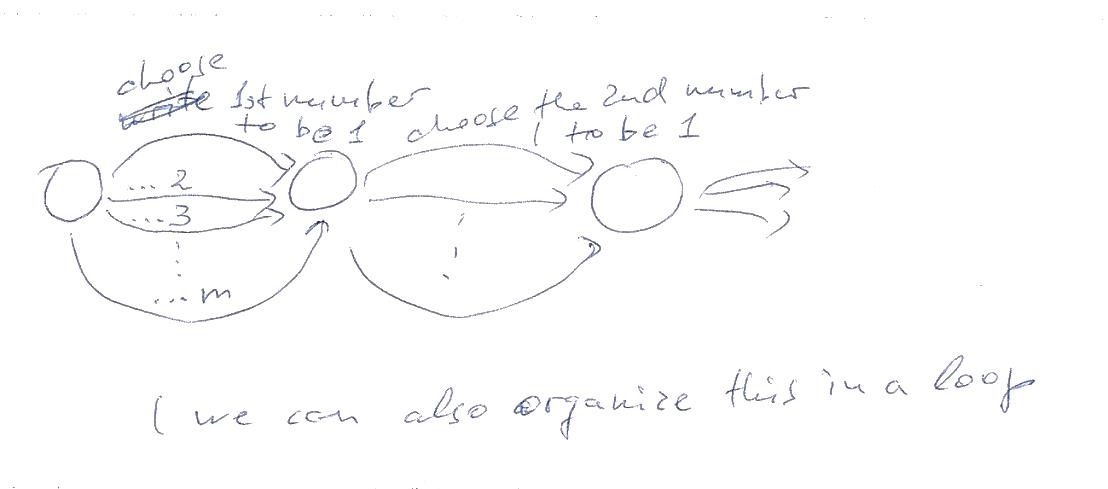 choose
1st number
to be 1
choose the 2nd number
to be 1
... 2
... 3
... m
( we can also organize this in a loop